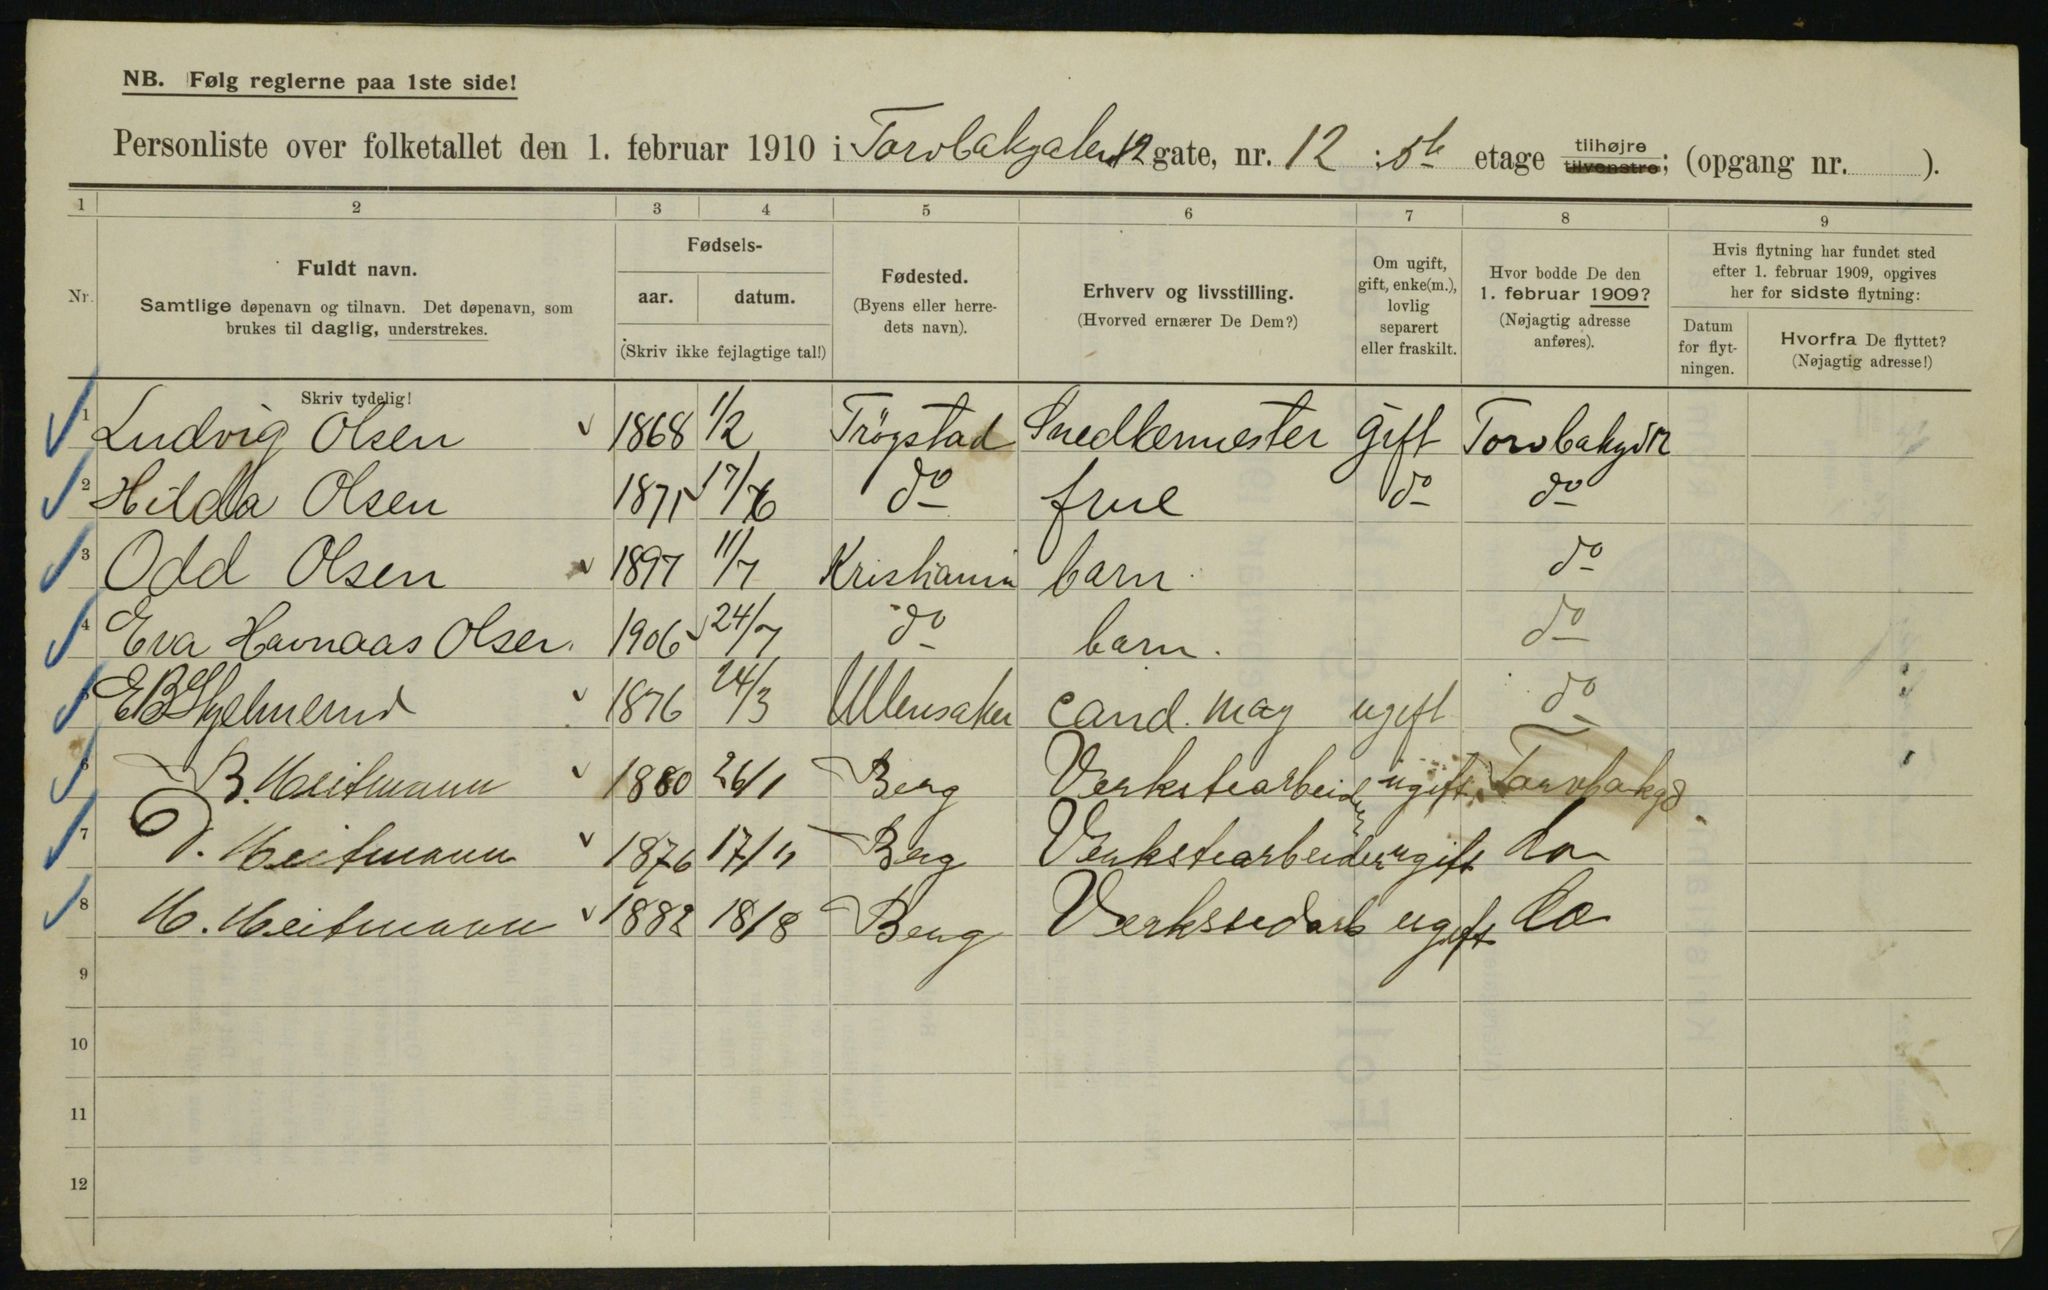 NB. Følg reglerne paa 1ste side!
Personliste over folketallet den 1. februar 1910 i Torvbakgaten 12 gate, nr. 12 : 5te etage tilhøjre tilvenstre; (opgang nr. ).
1 2 3 4 5 6 7 8 9
Nr. Fuldt navn. Samtlige døpenavn og tilnavn. Det døpenavn, som brukes til daglig, understrekes.
Fødsels- aar. datum. (Skriv ikke fejlagtige tal!)
Fødested. (Byens eller herredets navn).
Erhverv og livsstilling. (Hvorved ernærer De Dem?)
Om ugift, gift, enke(m.), lovlig separert eller fraskilt.
Hvor bodde De den 1. februar 1909? (Nøjagtig adresse anføres).
Hvis flytning har fundet sted efter 1. februar 1909, opgives her for sidste flytning:
Datum for flytningen.
Hvorfra De flyttet? (Nøjagtig adresse!)
Skriv tydelig!
1 Ludvig Olsen 1868 1/2 Trögstad Snedkermester gift Torvbakgd 12
2 Hilda Olsen 1871 17/6 do frue do do
3 Odd Olsen 1897 11/7 Kristiania barn do
4 Eva Havnaas Olsen 1906 24/7 do barn. do
5 E B 1876 24/3 Ullensaker cand. mag ugift do
6 B. Heitmann 1880 26/1 Berg Verkstearbeider ugift Torvbakgd
7 D. Heitmann 1876 17/11 Berg Verkstearbeider ugift do
8 H. Heitmann 1882 18/8 Berg Verkstedarb ugift do
9
10
11
12